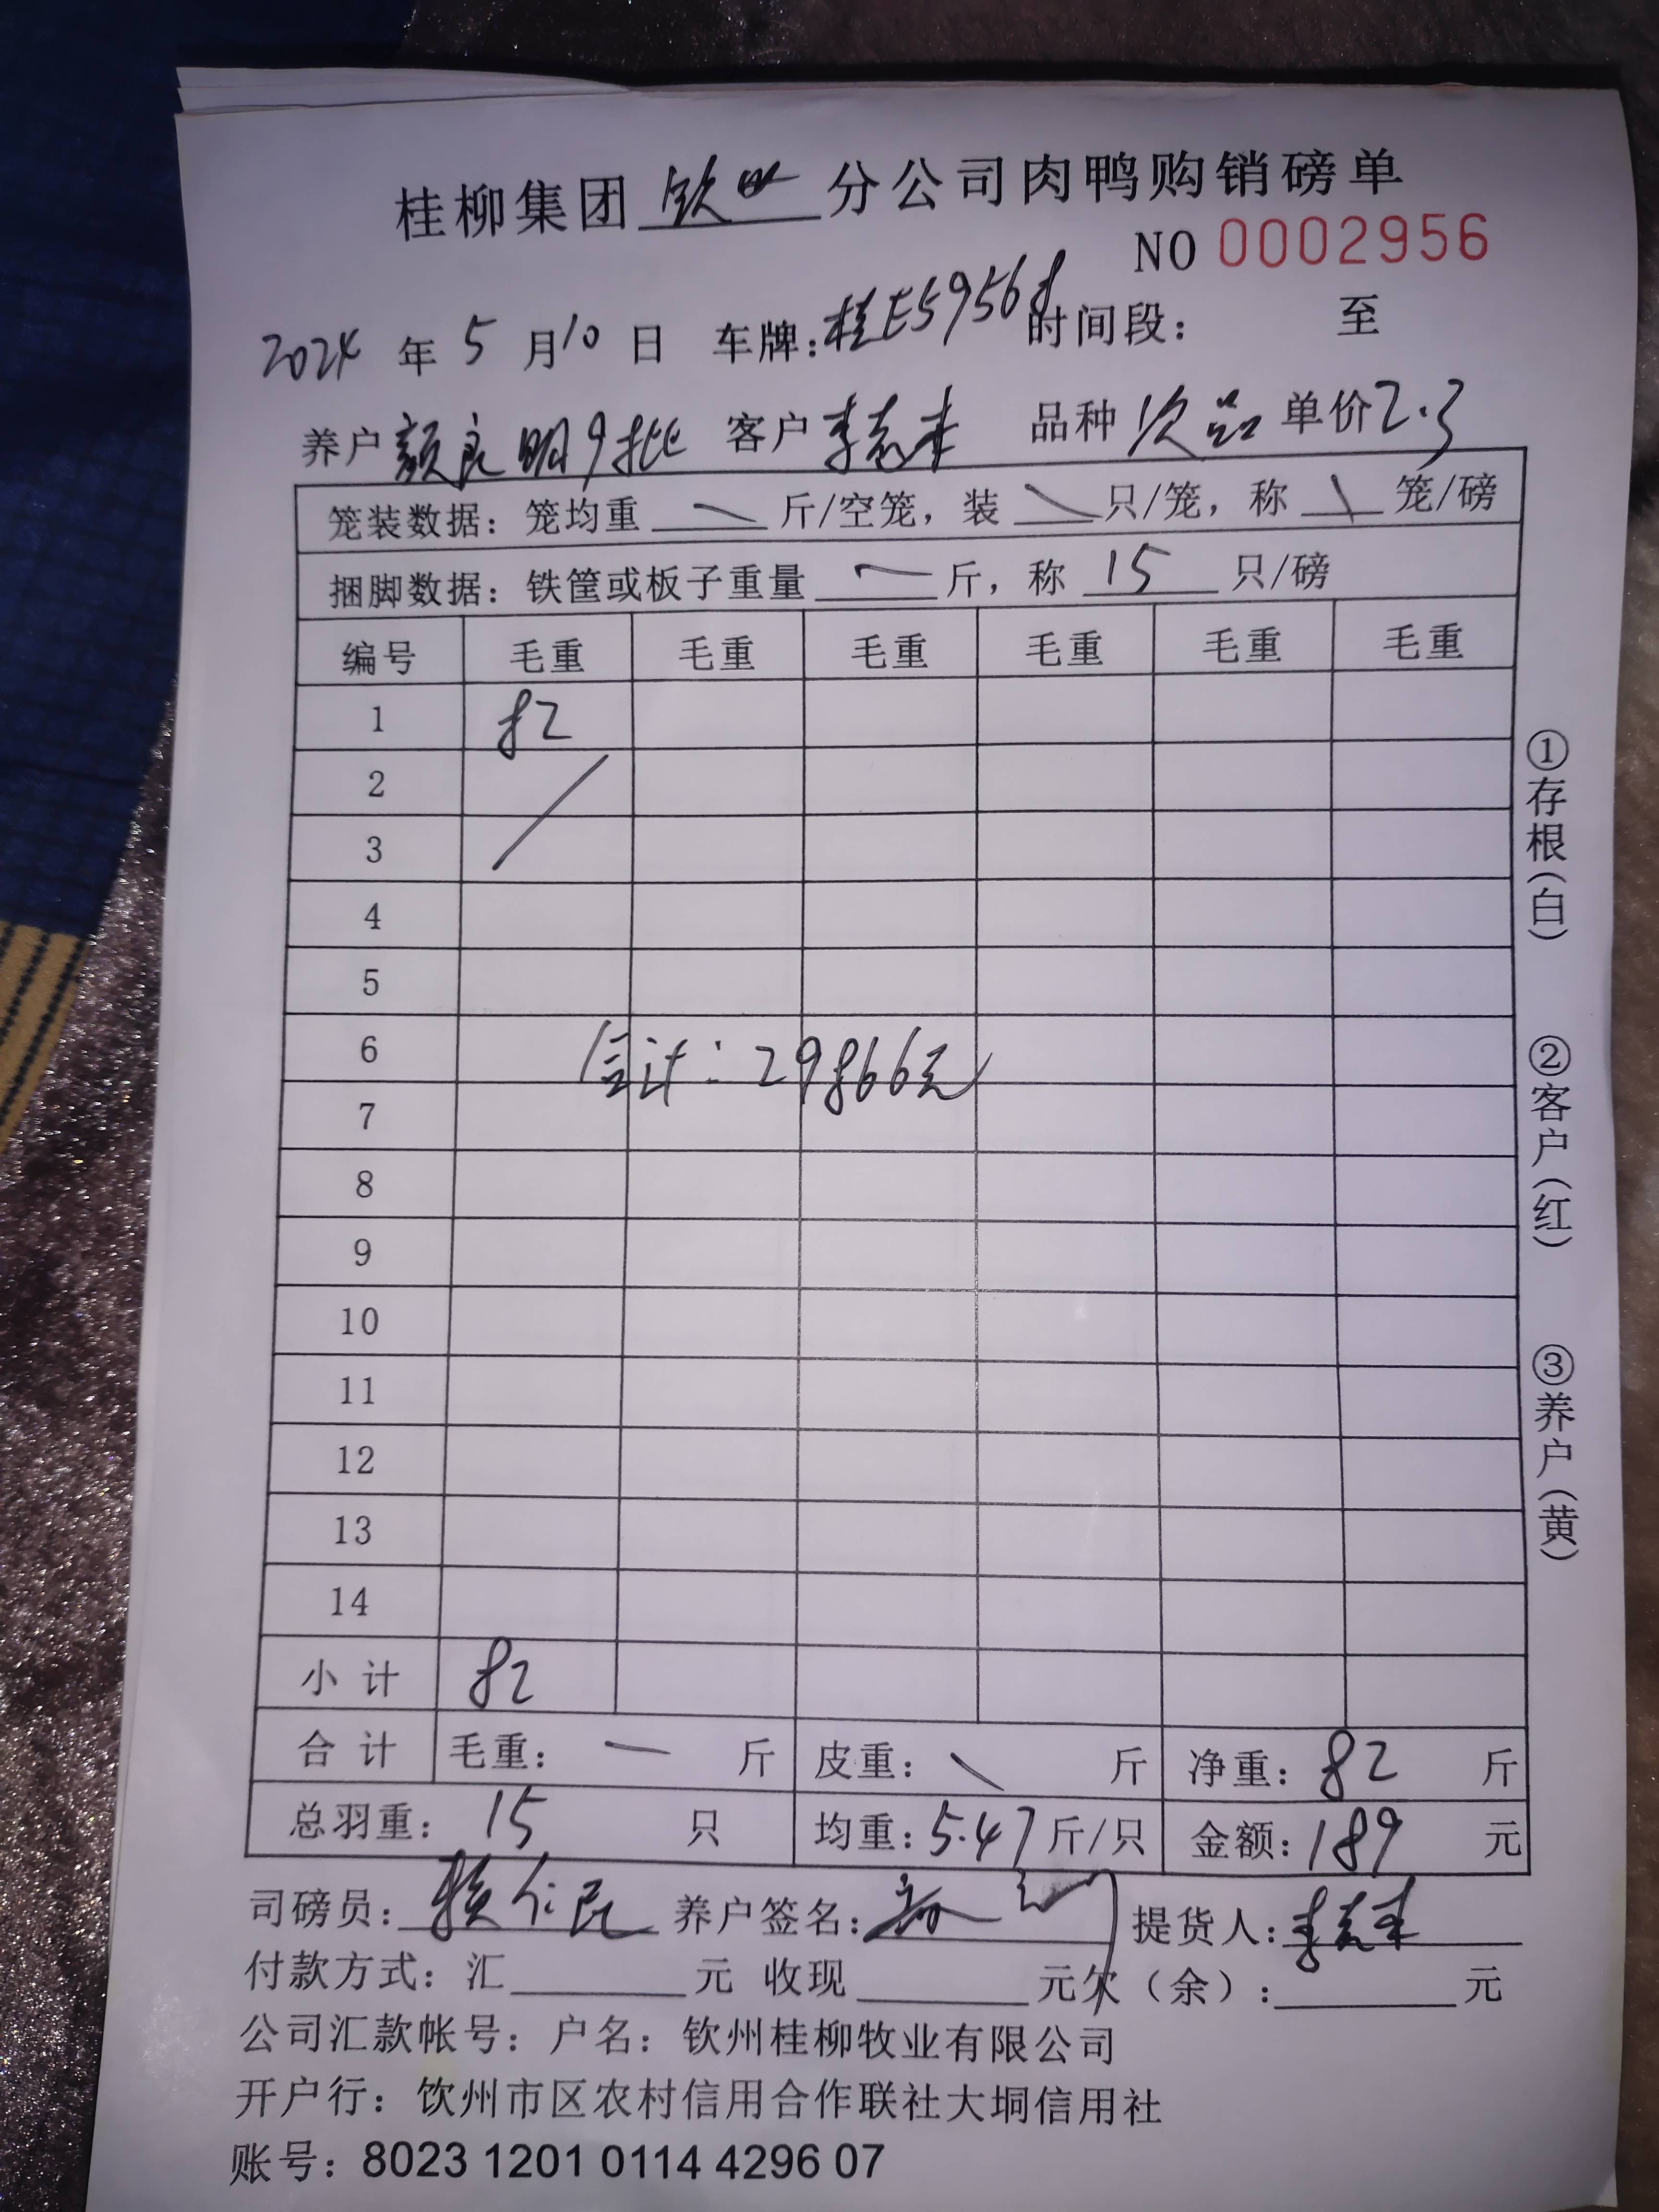 桂柳集团 钦州 分公司肉鸭购销磅单
NO 0002956
2024 年 5 月 10 日 车牌: 桂E59568 时间段: 至
养户 颜良明9批 客户 李志丰 品种 次品 单价 2.3
笼装数据: 笼均重 — 斤/空笼, 装 \ 只/笼, 称 \ 笼/磅
捆脚数据: 铁筐或板子重量 — 斤, 称 15 只/磅
编号 毛重 毛重 毛重 毛重 毛重 毛重
1 82
2
3
4
5
6
合计: 29866元
7
8
9
10
11
12
13
14
小计 82
合计 毛重: — 斤 皮重: \ 斤 净重: 82 斤
总羽重: 15 只 均重: 5.47 斤/只 金额: 189 元
司磅员: 仁民 养户签名: 提货人: 李志丰
付款方式: 汇 元 收现 元 欠(余): 元
公司汇款帐号: 户名: 钦州桂柳牧业有限公司
开户行: 钦州市区农村信用合作联社大垌信用社
账号: 8023 1201 0114 4296 07
①存根(白)
②客户(红)
③养户(黄)